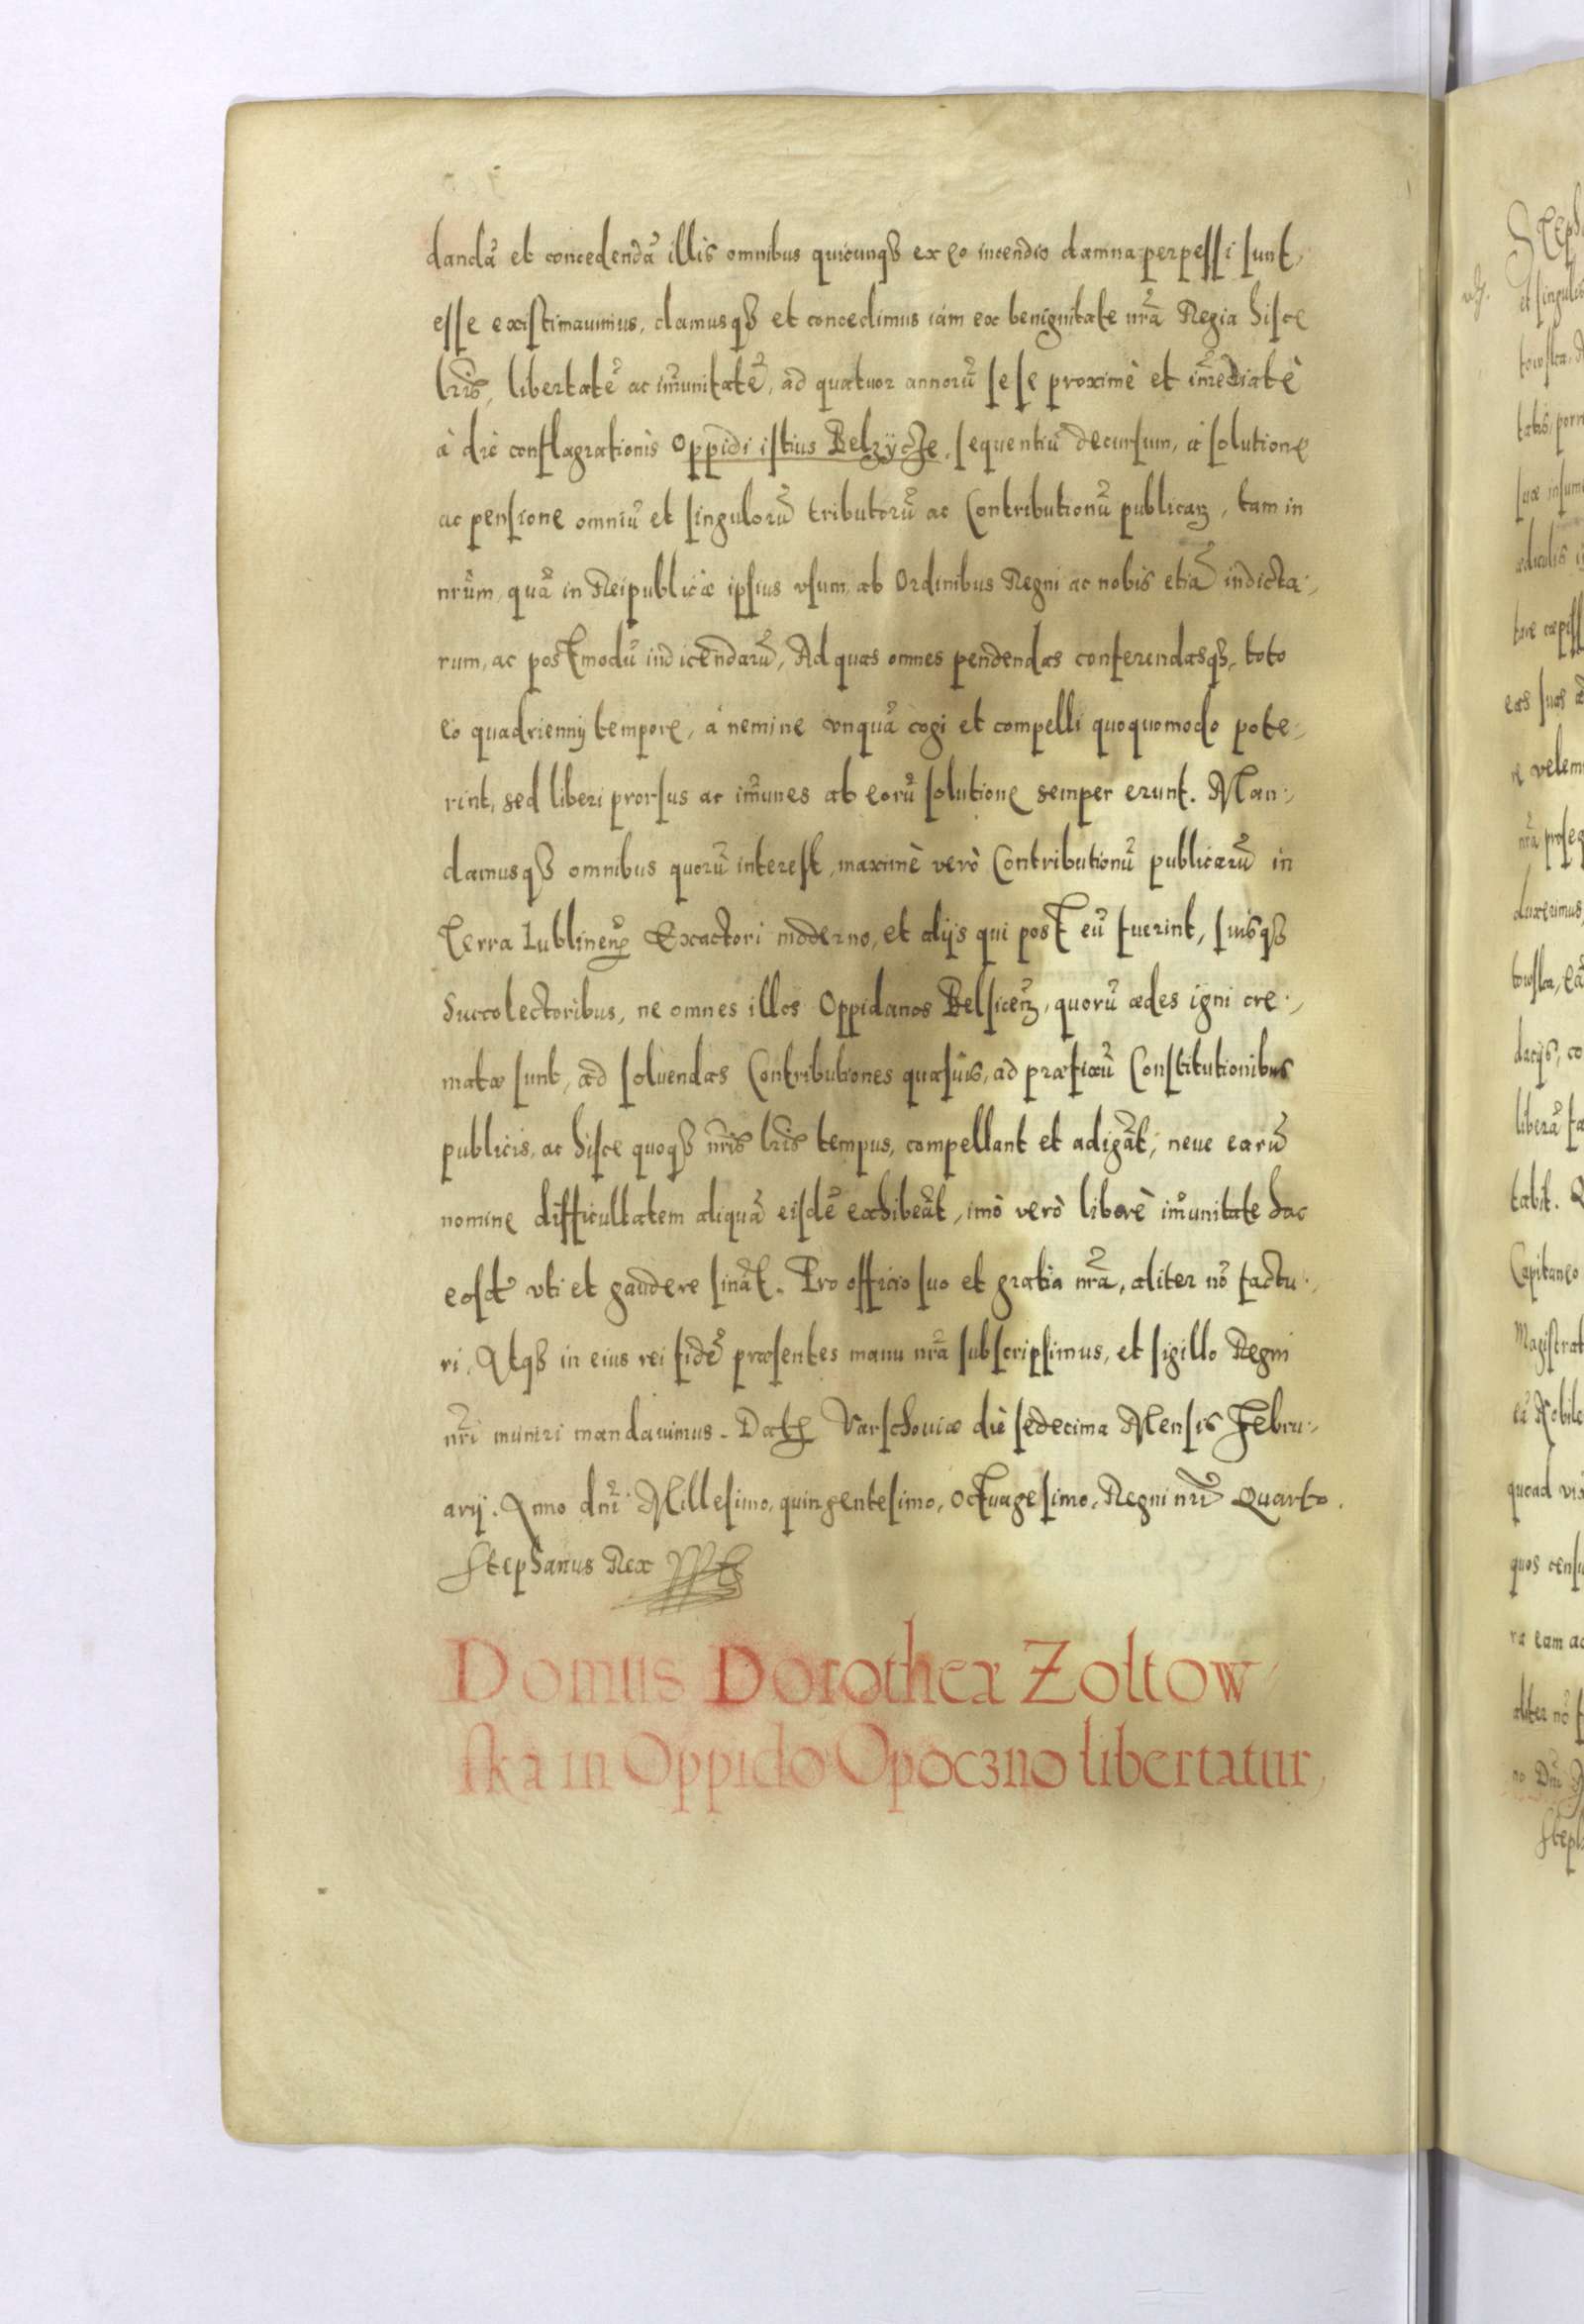 dandã et concedendã illis omnibus quicunqȝ ex eo incendio damna perpessi sunt,
esse existimauimus, damusqȝ et concedimus iam ex benignitate nrã Regia hisce
lris, libertatẽ ac im̃unitatẽ, ad quatuor annorũ sese proximè et im̃ediatè
à die conflagrationis Oppidi istius Belzycze, sequentiũ decursum, à solutione
ac pensione omniũ et singulorũ tributorũ ac Contributionũ publicaꝝ, tam in
nrũm, quã in Reipublicæ ipsius vsum, ab Ordinibus Regni ac nobis etiã indicta,
rum, ac postmodũ indicendarũ, Ad quas omnes pendendas conferendasqȝ, toto
eo quadriennij tempore, à nemine vnquã cogi et compelli quoquomodo pote,
rint, sed liberi prorsus ac im̃unes ab eorũ solutione semper erunt. Man,
damusqȝ omnibus quorũ interest, maximè verò Contributionũ publicarũ in
Terra Lublinen̄ Exactori moderno, et alijs qui post eũ fuerint, suisqȝ
Succolectoribus, ne omnes illos Oppidanos Belsicen̄, quorũ ædes igni cre,
matæ sunt, ad soluendas Contributiones quasuis, ad præfixũ Constitutionibus
publicis, ac hisce quoqȝ nr̃is lris tempus, compellant et adigãt, neue earũ
nomine difficultatem aliquã eisdẽ exhibeãt, imò verò liberè im̃unitate hac
eosdẽ vti et gaudere sinãt. Pro officio suo et gratia nrã, aliter nõ factu,
ri. Atqȝ in eius rei fidẽ præsentes manu nrã subscripsimus, et sigillo Regni
nr̃i muniri mandauimus. Dat̃ Varschouiæ die sedecima Mensis Febru,
arij. Anno dnĩ Millesimo, quingentesimo, Octuagesimo, Regni nrĩ Quarto.
Stephanus Rex
Domus Dorotheæ Zoltow
ska in Oppido Opoczno libertatur,